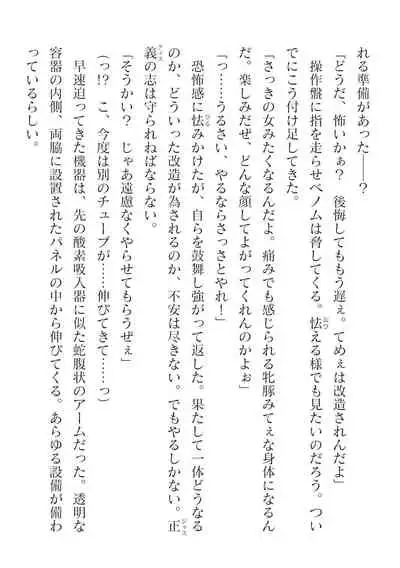 れる準備があった――？
「どうだ、怖いかぁ？　後悔してももう遅ぇ。てめぇは改造されんだよ」
操作盤に指を走らせベノムは脅してくる。怯える様でも見たいのだろう。つい
でにこう付け足してきた。
「さっきの女みたくなるんだよ。痛みでも感じられる牝豚みてぇな身体になるん
だ。楽しみだぜ、どんな顔してよがってくれんのかよぉ」
「っ……うるさい、やるならさっさとやれ！」
恐怖感に怯みかけたが、自らを鼓舞し強がって返した。果たして一体どうなる
のか、どういった改造が為されるのか、不安は尽きない。でもやるしかない。正
義の志は守られねばならない。
「そうかい？　じゃあ遠慮なくやらせてもらうぜぇ」
（っ!?　こ、今度は別のチューブが……伸びてきて……っ）
早速迫ってきた機器は、先の酸素吸入器に似た蛇腹状のアームだった。透明な
容器の内側、両脇に設置されたパネルの中から伸びてくる。あらゆる設備が備わ
っているらしい。